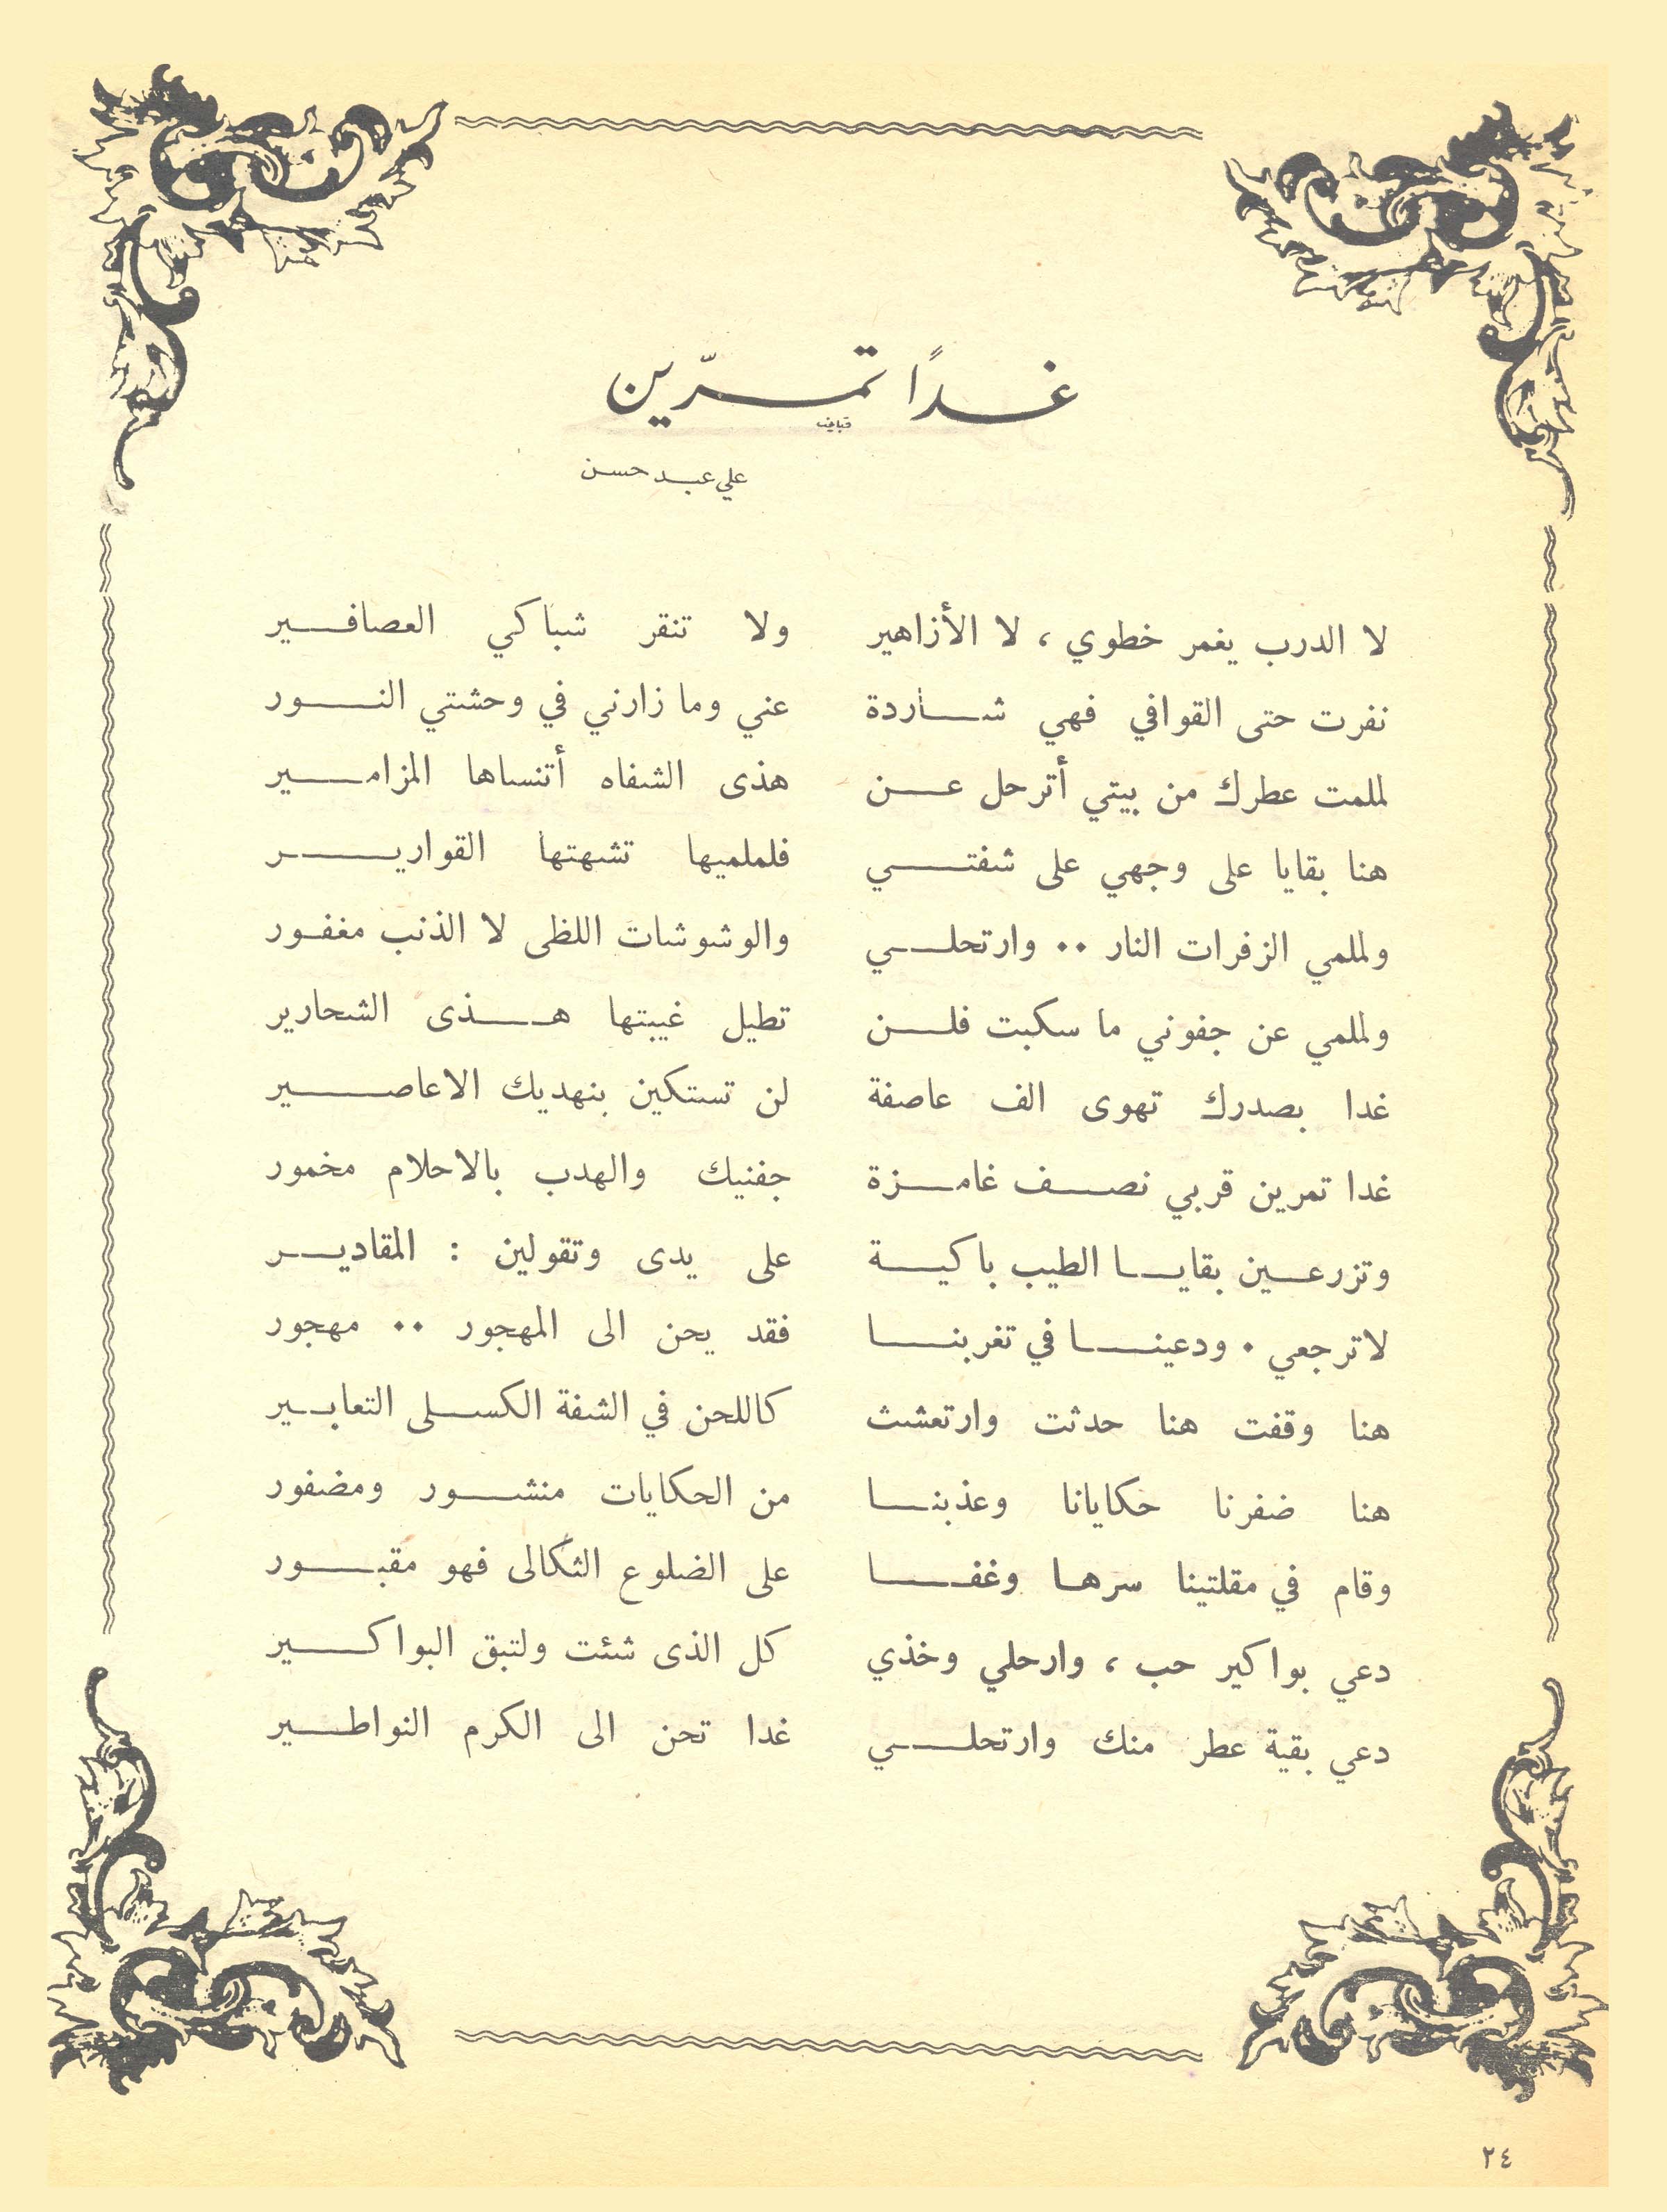 غدًا تمرّين
علي عبد حسن
لا الدرب يغمر خطوي ، لا الأزاهير ولا تنقر شباكي العصافير
نفرت حتى القوافي فهي شاردة عني وما زارني في وحشتي النور
لملمت عطرك من بيتي أترحل عن هذى الشفاه أتنساها المزامير
هنا بقايا على وجهي على شفتي فلملميها تشهتها القوارير
ولملمي الزفرات النار ٠٠ وارتحلي والوشوشات اللظى لا الذنب مغفور
ولملمي عن جفوني ما سكبت فلن تطيل غيبتها هذى الشحارير
غدا بصدرك تهوى الف عاصفة لن تستكين بنهديك الاعاصير
غدا تمرين قربي نصف غامزة جفنيك والهدب بالاحلام مخمور
وتزرعين بقايا الطيب باكية على يدى وتقولين : المقادير
لاترجعي ٠ ودعينا في تغربنا فقد يحن الى المهجور ٠٠ مهجور
هنا وقفت هنا حدثت وارتعشث كاللحن في الشفة الكسلى التعابير
هنا ضفرنا حكايانا وعذبنا من الحكايات منشور ومضفور
وقام في مقلتينا سرها وغفا على الضلوع الثكالى فهو مقبور
دعي بواكير حب ، وارحلي وخذي كل الذى شئت ولتبق البواكير
دعي بقية عطر منك وارتحلي غدا تحن الى الكرم النواطير
٢٤